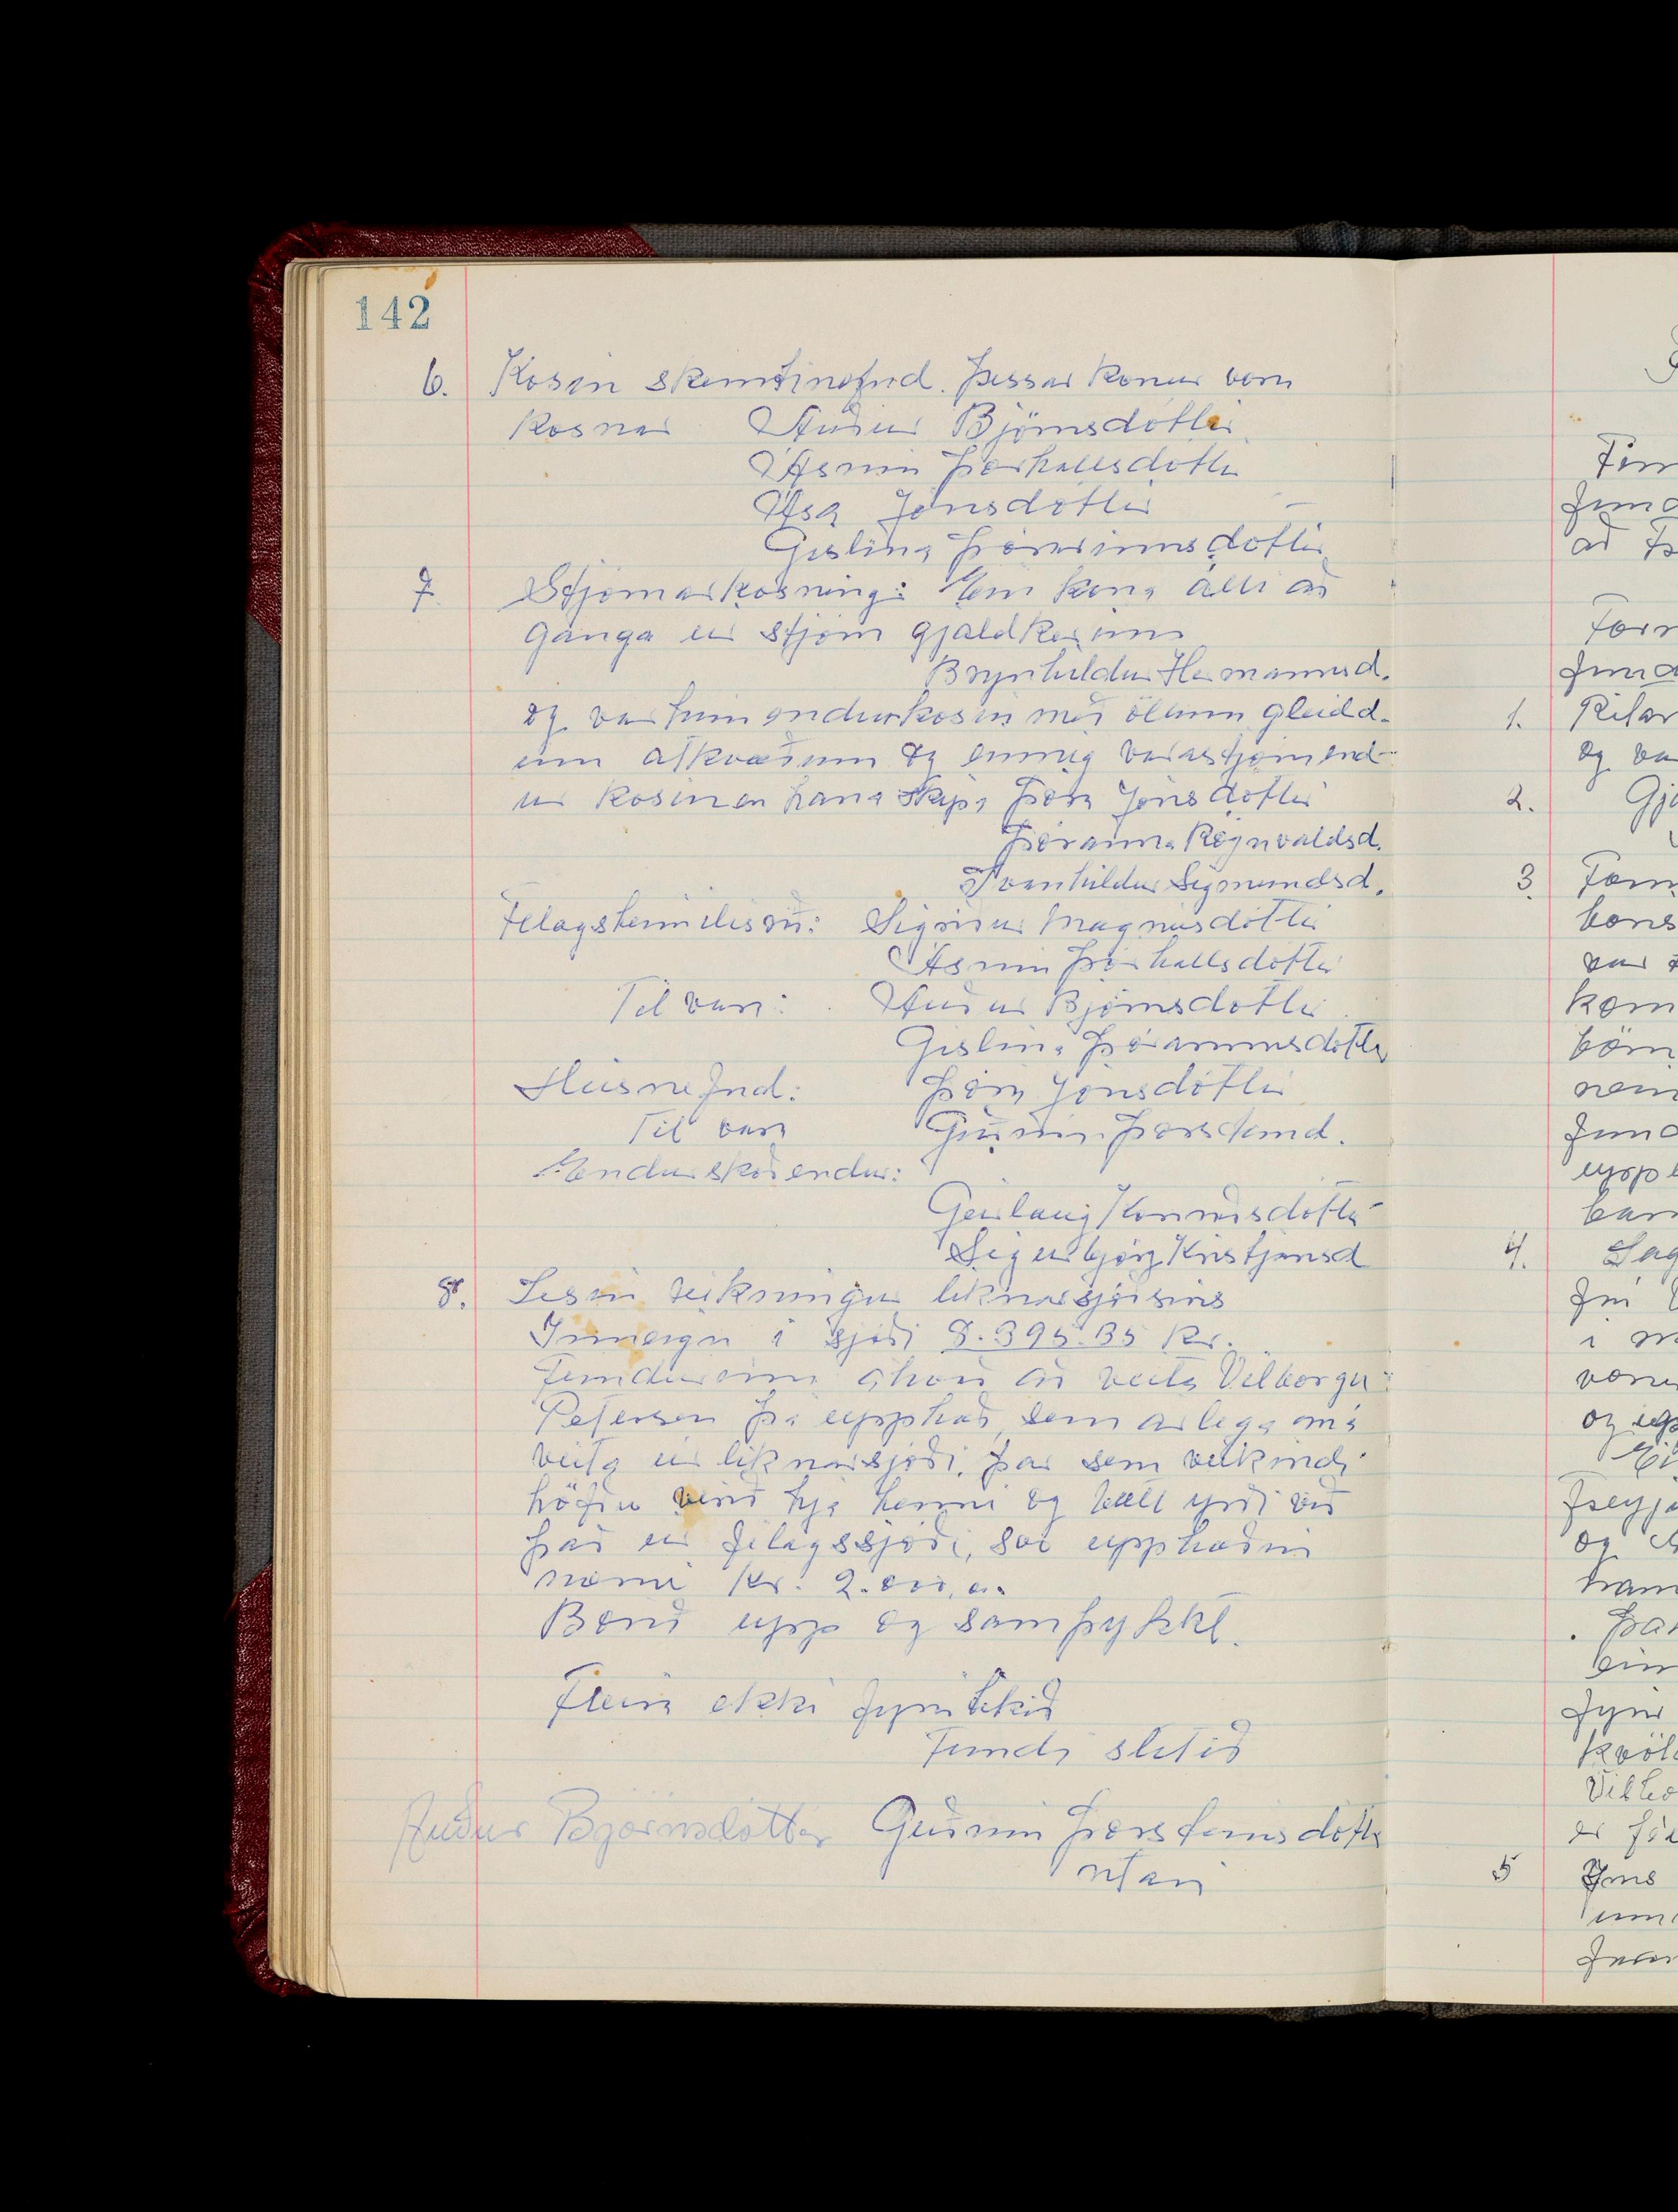 142
6. Kosin skemtinefnd. Þessar konur voru
kosnar Auður Björnsdóttir
Ásrún Þórhallsdóttir
Ása Jónsdóttir
Gíslína Þórarinnsdóttir
7. Stjórnarkosning: Ein kona átti að
ganga úr stjórn gjaldkerinn
Brynhildur Hermannsd.
og var hún endurkosin með öllum greidd-
um atkvæðum og einnig varastjórnend-
ur kosin en hana skipa Þóra Jónsdóttir
Þóranna Rögnvaldsd.
Svanhildur Sigmundsd.
Félagsheimilisráð: Sigríður Magnúsdóttir
Ásrún Þórhallsdóttir
Til vara: Auður Björnsdóttir
Gíslína Þórarinnsdóttir
Húsnefnd: Þóra Jónsdóttir
Til vara Guðrún Þorsteinsd.
Endurskoðendur:
Geirlaug Konráðsdóttir
Sigurbjörg Kristjánsd
8. Lesin reikningur líknarsjóðsins
Inneign í sjóði 8.395.35 kr.
Fundurinn ákvað að veita Vilborgu
Petersen þá upphæð, sem árlega má
veita úr líknarsjóði, þar sem veikindi
höfðu verið hjá henni og bætt yrði við
það úr félagssjóði, svo upphæðin
næmi kr. 2.000,00
Borið upp og samþykkt.
Fleira ekki fyrirtekið
Fundi slitið
Auður Björnsdóttir Guðrún Þorsteinsdóttir
ritari
1. Ritar
og va
2. Gj
3.
kom
börn
fund
4.
5